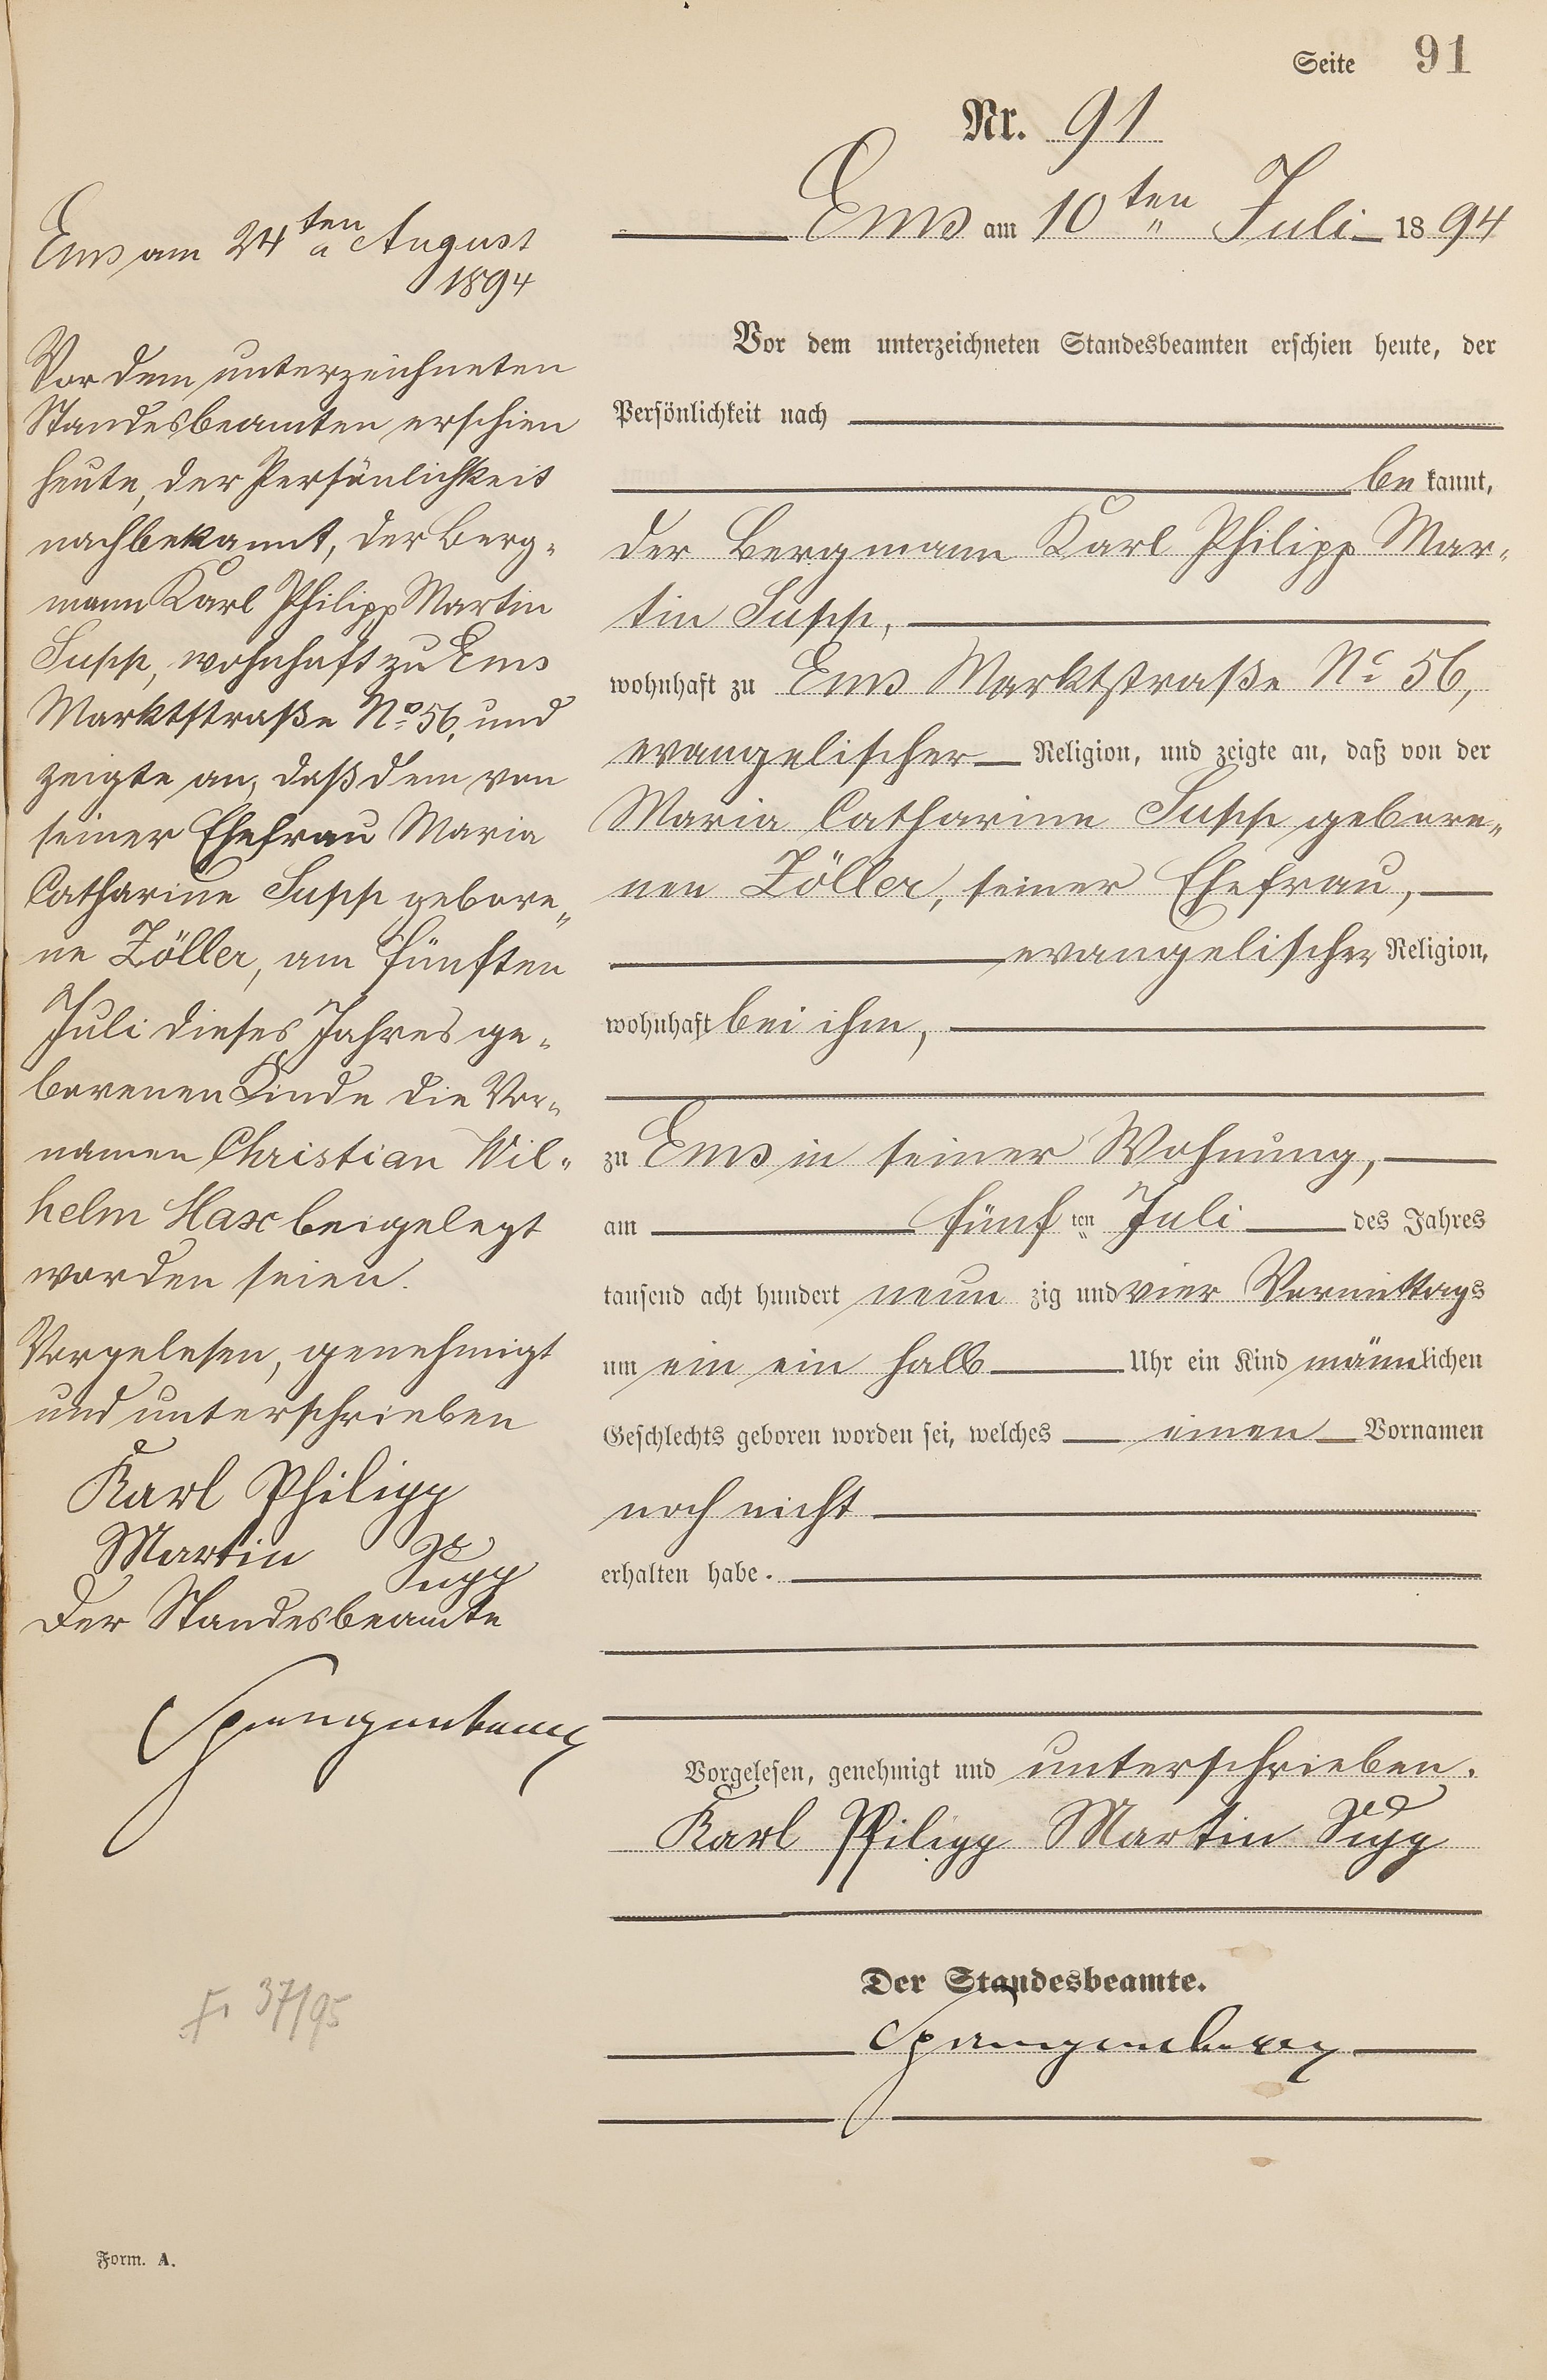 Seite 91
Nr. 91
Ems am 10ten Juli 1894
Vor dem unterzeichneten Standesbeamten erschien heute, der
Persönlichkeit nach
be kannt,
der Bergmann Karl Philipp Mar-
tin Supp,
wohnhaft zu Ems Marktstraße No 56,
evangelischer Religion, und zeigte an, daß von der
Maria Catharine Supp gebore-
nen Zöller, seiner Ehefrau,
evangelischer Religion,
wohnhaft bei ihm,
zu Ems in seiner Wohnung,
am fünf ten Juli des Jahres
tausend acht hundert neun zig und vier Vormittags
um ein ein halb Uhr ein Kind männlichen
Geschlechts geboren worden sei, welches einen Vornamen
noch nicht
erhalten habe.
Vorgelesen, genehmigt und unterschrieben.
Karl Philipp Martin Supp
Der Standesbeamte.
Spangenberg
Ems am 24ten August
1894
Vor dem unterzeichneten
Standesbeamten erschien
heute, der Persönlichkeit
nach bekannt, der Berg-
mann Karl Philipp Martin
Supp, wohnhaft zu Ems
Marktstraße No 56, und
zeigte an, daß dem von
seiner Ehefrau Maria
Catharine Supp gebore-
ne Zöller, am fünften
Juli dieses Jahres ge-
borenen Kinde die Vor-
namen Christian Wil-
helm Max beigelegt
worden seien.
Vorgelesen, genehmigt
und unterschrieben
Karl Philipp
Martin Supp
Der Standesbeamte
Spangenberg
37/95
Form. A.